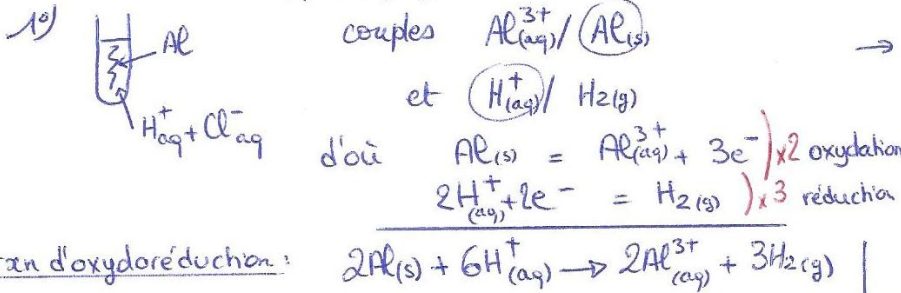 1°) Al couples Al³⁺(aq) / Al(s) →
et H⁺(aq) / H2(g)
H⁺aq + Cl⁻aq
d'où Al(s) = Al³⁺(aq) + 3e⁻ ) x2 oxydation
2H⁺(aq) + 2e⁻ = H2(g) ) x3 réduction
xn d'oxydoréduction : 2Al(s) + 6H⁺(aq) → 2Al³⁺(aq) + 3H2(g)